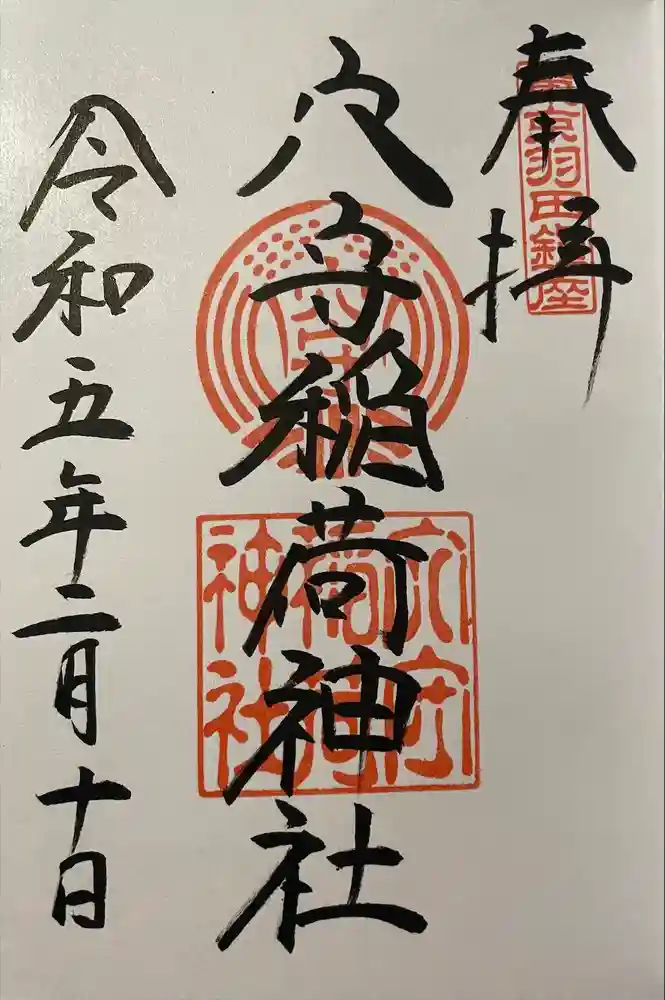 奉拝
東京羽田鎮座
穴守稲荷神社
穴守稲荷神社
令和五年二月十日